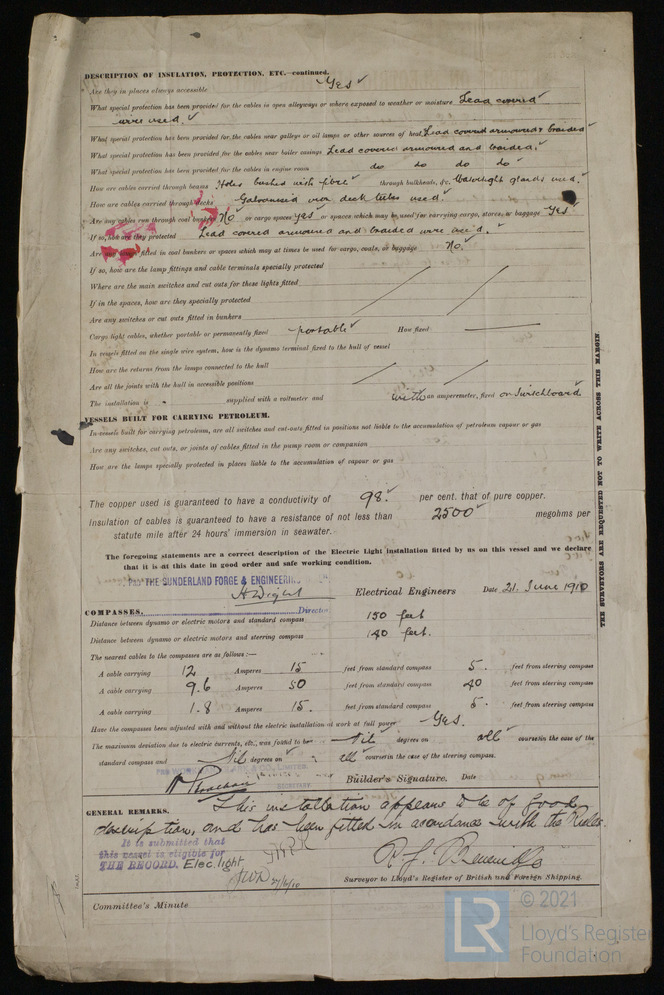 DESCRIPTION OF INSULATION, PROTECTION, ETC.—continued.
Are they in places always accessible Yes
What special protection has been provided for the cables in open alleyways or where exposed to weather or moisture Lead covered
wire used.
What special protection has been provided for the cables near galleys or oil lamps or other sources of heat Lead covered armoured & braided
What special protection has been provided for the cables near boiler casings Lead covered armoured and braided.
What special protection has been provided for the cables in engine room do do do do
How are cables carried through beams Holes bushed with fibre through bulkheads, &c. Watertight glands used.
How are cables carried through decks Galvanised iron deck tubes used
Are any cables run through coal bunkers No or cargo spaces yes or spaces which may be used for carrying cargo, stores, or baggage yes
If so, how are they protected Lead covered armoured and braided wire used.
Are any lamps fitted in coal bunkers or spaces which may at times be used for cargo, coals, or baggage No.
If so, how are the lamp fittings and cable terminals specially protected
Where are the main switches and cut outs for these lights fitted
If in the spaces, how are they specially protected
Are any switches or cut outs fitted in bunkers
Cargo light cables, whether portable or permanently fixed portable How fixed
In vessels fitted on the single wire system, how is the dynamo terminal fixed to the hull of vessel
How are the returns from the lamps connected to the hull
Are all the joints with the hull in accessible positions
The installation is supplied with a voltmeter and with an amperemeter, fixed on Switchboard
VESSELS BUILT FOR CARRYING PETROLEUM.
In vessels built for carrying petroleum, are all switches and cut-outs fitted in positions not liable to the accumulation of petroleum vapour or gas
Are any switches, cut outs, or joints of cables fitted in the pump room or companion
How are the lamps specially protected in places liable to the accumulation of vapour or gas
The copper used is guaranteed to have a conductivity of 98. per cent. that of pure copper.
Insulation of cables is guaranteed to have a resistance of not less than 2500 megohms per
statute mile after 24 hours' immersion in seawater.
The foregoing statements are a correct description of the Electric Light installation fitted by us on this vessel and we declare
that it is at this date in good order and safe working condition.
For THE SUNDERLAND FORGE & ENGINEERING
A Wright Electrical Engineers Date 21. June 1910
Director
COMPASSES.
Distance between dynamo or electric motors and standard compass 150 feet
Distance between dynamo or electric motors and steering compass 140 feet.
The nearest cables to the compasses are as follows:—
A cable carrying 12 Amperes 15 feet from standard compass 5. feet from steering compass
A cable carrying 9.6 Amperes 50 feet from standard compass 40 feet from steering compass
A cable carrying 1.8 Amperes 15. feet from standard compass 5. feet from steering compass
Have the compasses been adjusted with and without the electric installation at work at full power Yes.
The maximum deviation due to electric currents, etc., was found to be Nil degrees on all course in the case of the
standard compass and Nil degrees on all course in the case of the steering compass.
Builder's Signature. Date
GENERAL REMARKS. This installation appears to be of good
description, and has been fitted in accordance with the Rules.
It is submitted that
this vessel is eligible for
THE RECORD. Elec. light
Surveyor to Lloyd's Register of British and Foreign Shipping.
Committee's Minute
THE SURVEYORS ARE REQUESTED NOT TO WRITE ACROSS THIS MARGIN.
LR
© 2021
Lloyd's Register
Foundation